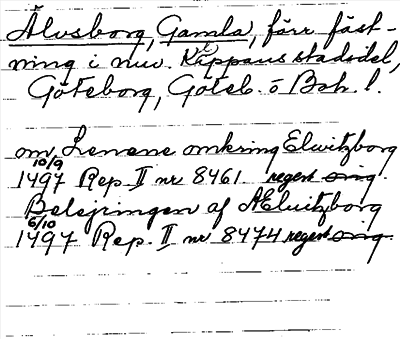 Älvsborg, Gamla, förr fäst-
ning i nuv. Kippaus stadsdel,
Göteborg, Göteb. o Boh. l.
om Lenene omkring Elwitzborg
10/9
1497 Rep. II nr 8461 regest orig.
Belejringen af AEluitzborg
6/10
1497 Rep. II nr 8474 regest orig.